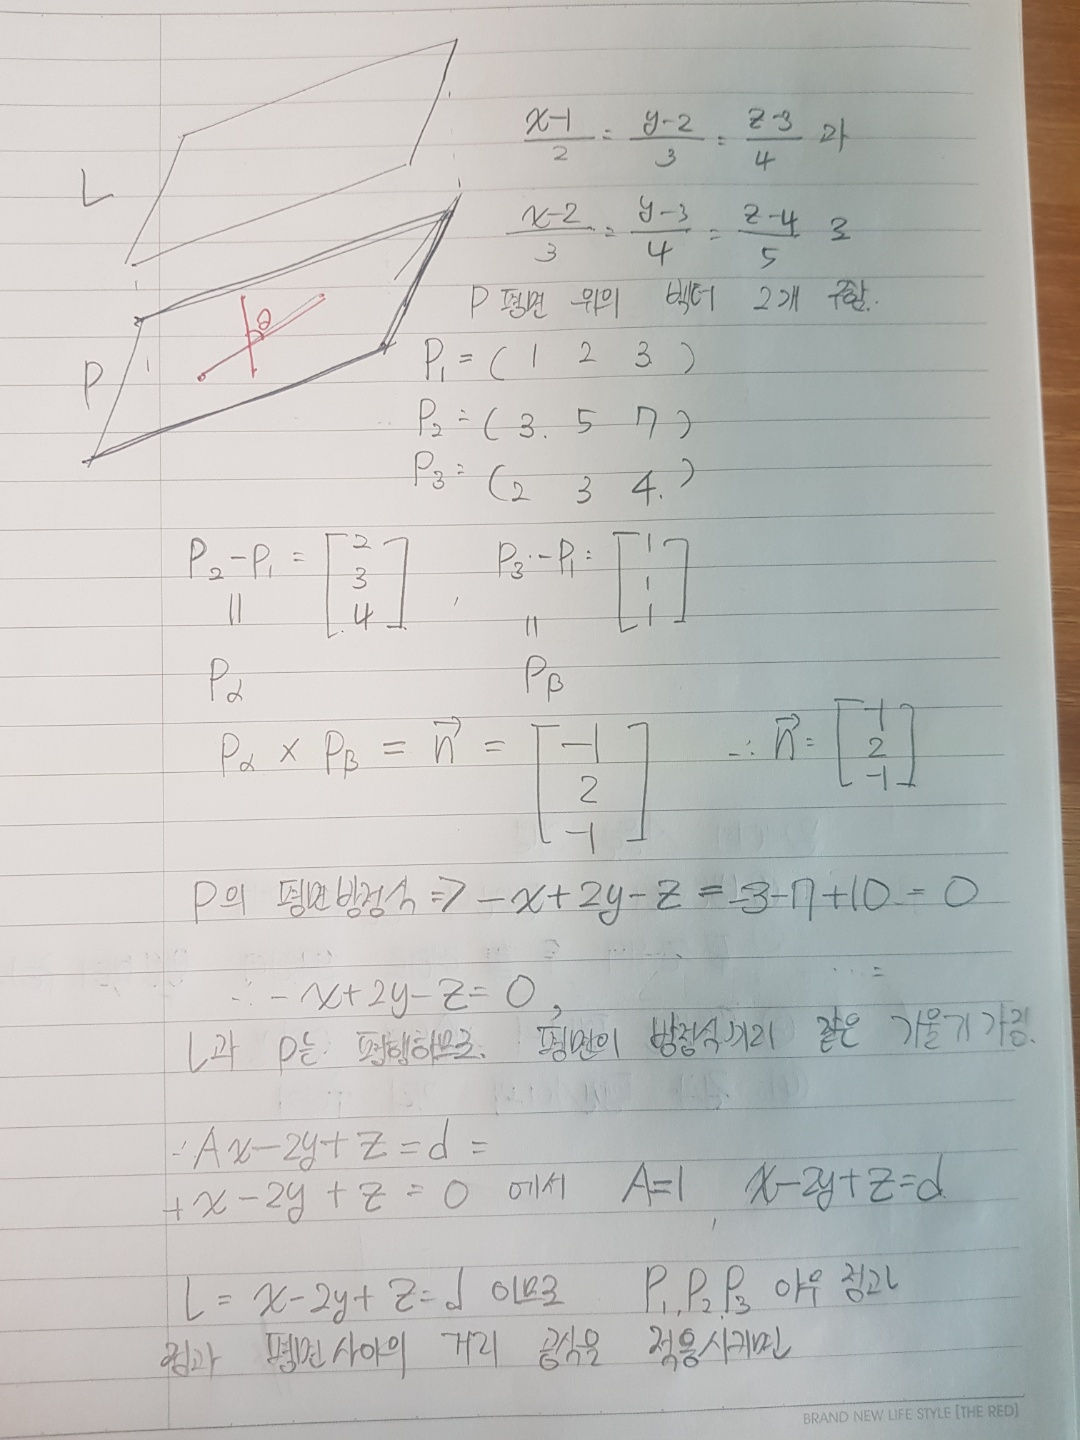 x-1/2 = y-2/3 = z-3/4 과
L
x-2/3 = y-3/4 = z-4/5 로
P평면 위의 벡터 2개 구함.
θ
P
P₁ = ( 1 2 3 )
P₂ = ( 3. 5 7 )
P₃ = ( 2 3 4. )
P₂-P₁ = [2 3 4] , P₃-P₁ = [1 1 1]
|| ||
Pα Pβ
Pα × Pβ = n⃗ = [-1 2 -1] ∴ n⃗ = [-1 2 -1]
P의 평면방정식 => -x+2y-z = -3-7+10 = 0
∴ -x+2y-z=0,
L과 P는 평행하므로. 평면의 방정식끼리 같은 기울기 가짐.
∴ Ax-2y+z=d =
+x-2y+z=0 에서 A=1, x-2y+z=d
L = x-2y+z=d 이므로 P₁, P₂, P₃ 아무 점과
점과 평면사이의 거리 공식을 적용시키면
BRAND NEW LIFE STYLE [THE RED]